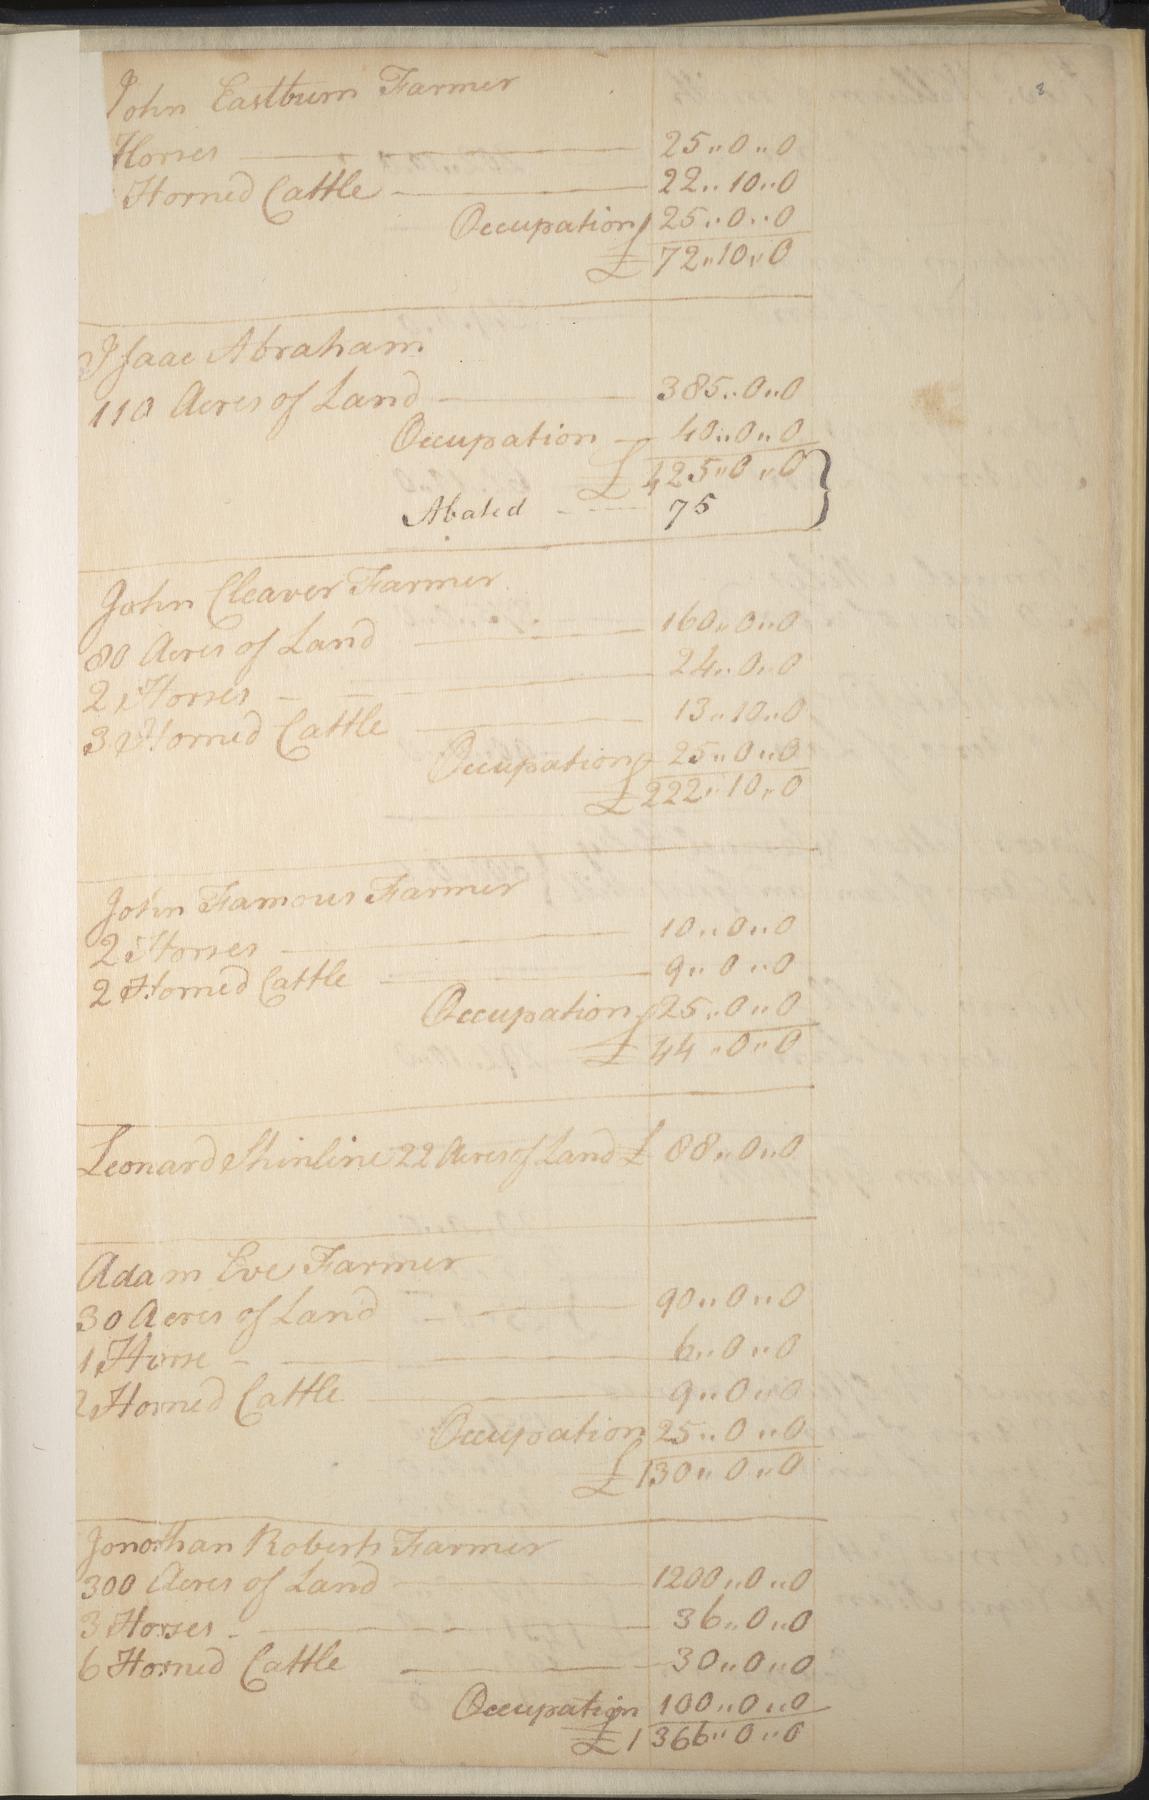 John Eastburn Farmer
Horses 25,,0,,0
Horned Cattle 22,,10,,0
Occupation 25,,0,,0
£ 72,,10,,0
Isaac Abraham
110 Acres of Land 385,,0,,0
Occupation 40,,0,,0
£ 425,,0,,0
Abated 75
John Cleaver Farmer
80 Acres of Land 160,,0,,0
2 Horses 24,,0,,0
3 Horned Cattle 13,,10,,0
Occupation 25,,0,,0
£ 222,,10,,0
John Famous Farmer
2 Horses 10,,0,,0
2 Horned Cattle 9,,0,,0
Occupation 25,,0,,0
£ 44,,0,,0
Leonard Shinline 22 Acres of Land £ 88,,0,,0
Adam Eve Farmer
30 Acres of Land 90,,0,,0
1 Horse 6,,0,,0
2 Horned Cattle 9,,0,,0
Occupation 25,,0,,0
£ 130,,0,,0
Jonathan Roberts Farmer
300 Acres of Land 1200,,0,,0
3 Horses 36,,0,,0
6 Horned Cattle 30,,0,,0
Occupation 100,,0,,0
£ 1366,,0,,0